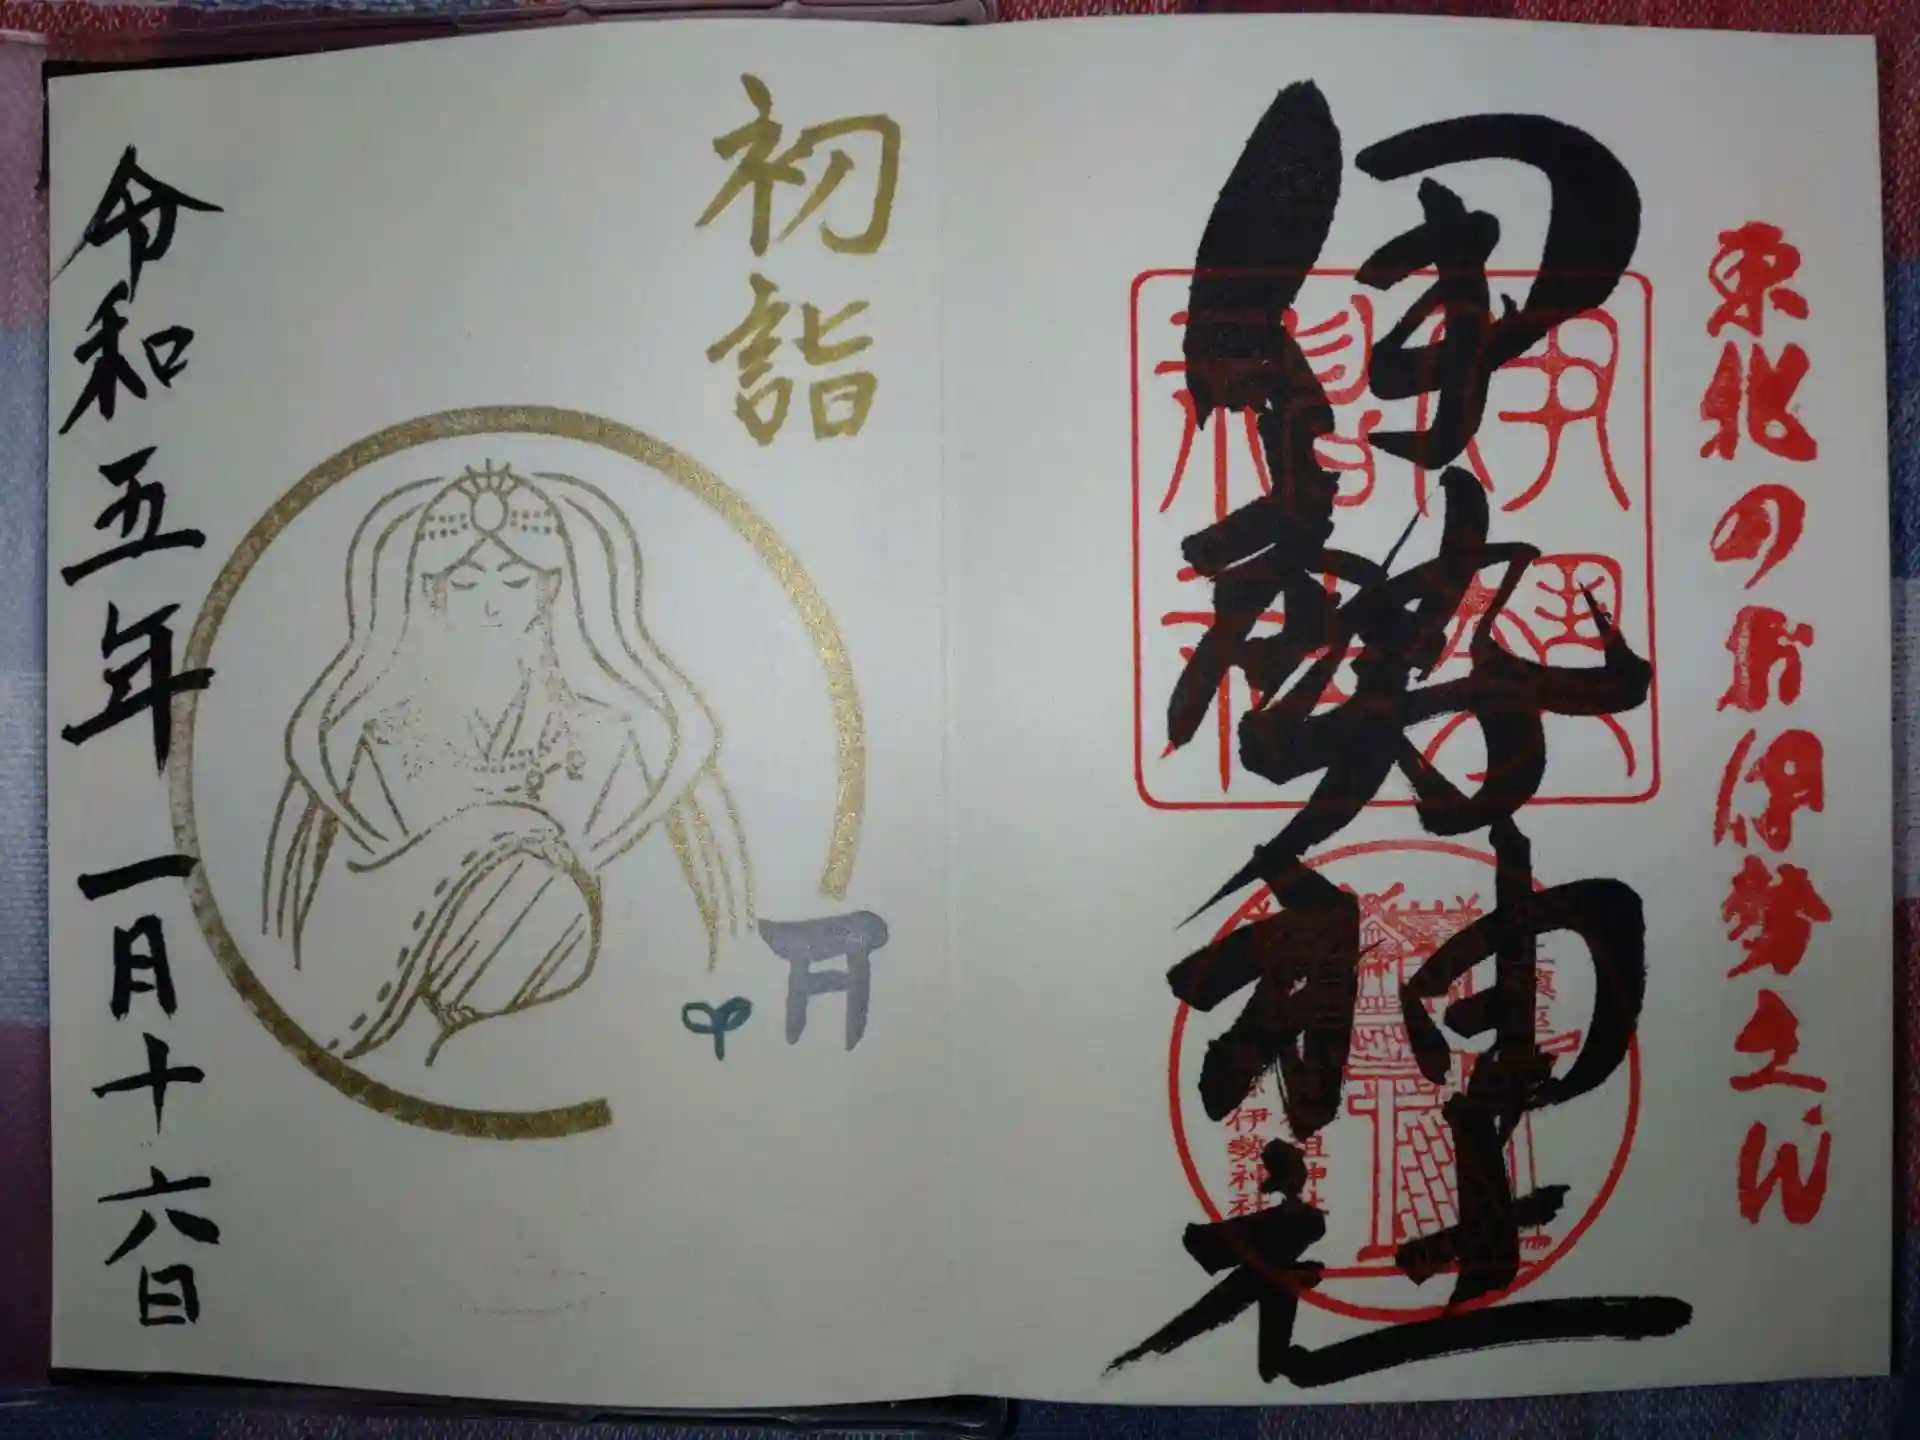 東北のお伊勢さん
伊勢神社
伊勢神社
初詣
令和五年一月十六日